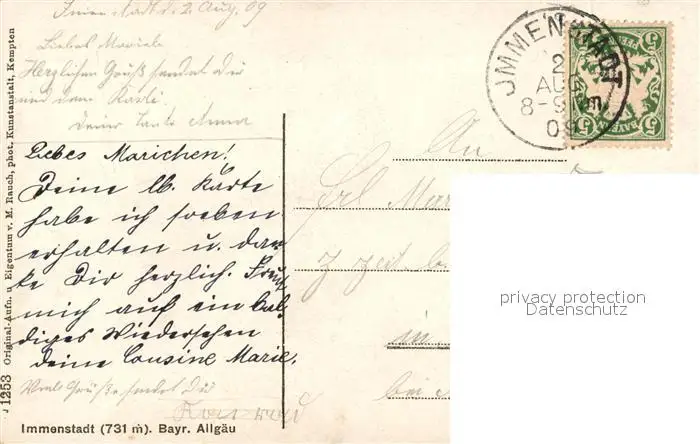 Immenstadt d. 2. Aug. 09
Liebes Mariele
Herzlichen Gruß sendet Dir
und dem Karli
Deine Tante Anna
Liebes Marichen!
Deine lb. Karte
habe ich soeben
erhalten u. dan-
ke Dir herzlich. Freue
mich auf ein bal-
diges Wiedersehen
deine Cousine Marie.
Viele Grüße sendet Dir
Immenstadt (731 m). Bayr. Allgäu
1253 Original-Aufn. u. Eigentum v. M. Rauch, phot. Kunstanstalt, Kempten
JMMENSTADT
2
AUG
8-9
09
5 5
BAYERN
5 5
An
Frl.
z Zeit
in
bei
privacy protection
Datenschutz